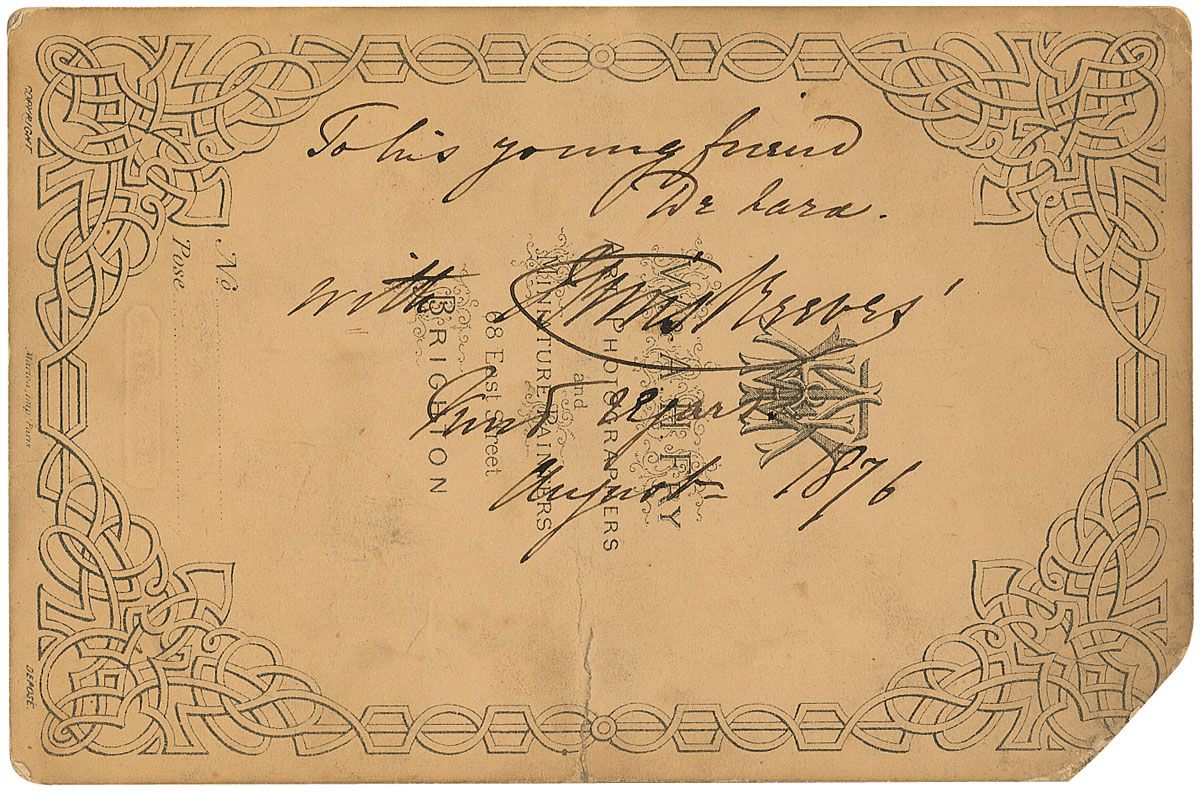 To his young friend
De Lara.
with Sims Reeves'
kind regards
August 1876
COPYRIGHT
DEPOSÉ
Nº
Pose
W. & A.H. FRY
ART PHOTOGRAPHERS
and
MINIATURE PAINTERS
68 East Street
BRIGHTON